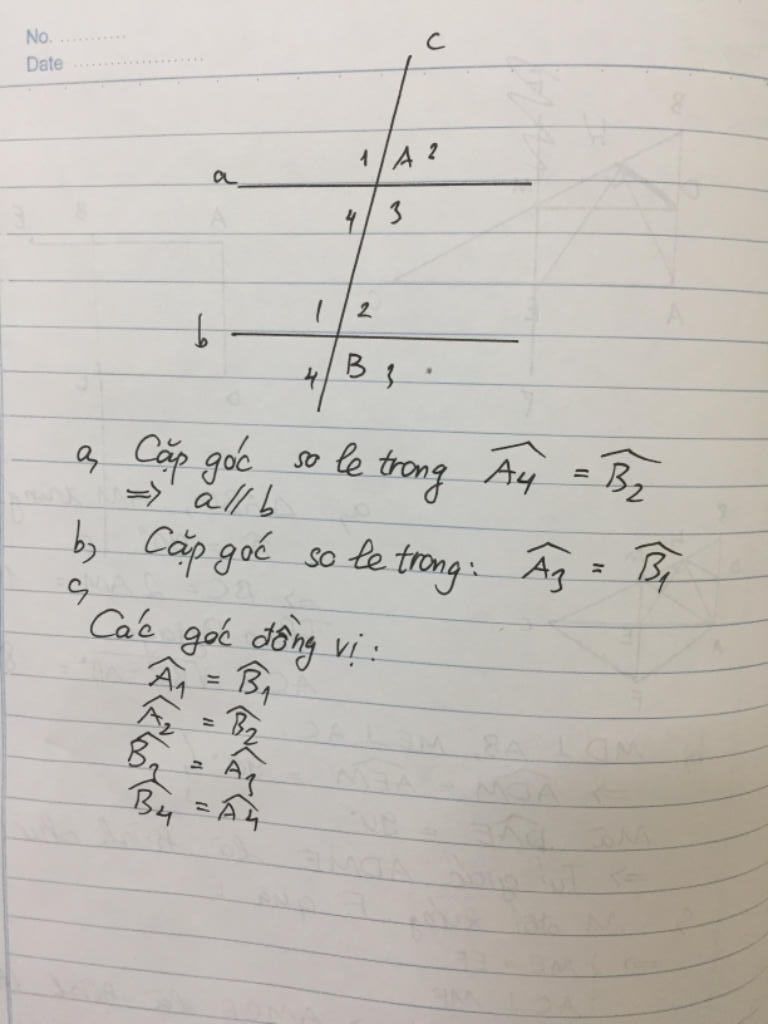 No. ...........
Date ......................
c
1 A 2
a
4 3
1 2
b
4 B 3
a, Cặp góc so le trong Â4 = B̂2
=> a // b
b, Cặp góc so le trong: Â3 = B̂1
c,
Các góc đồng vị:
Â1 = B̂1
Â2 = B̂2
B̂3 = Â3
B̂4 = Â4